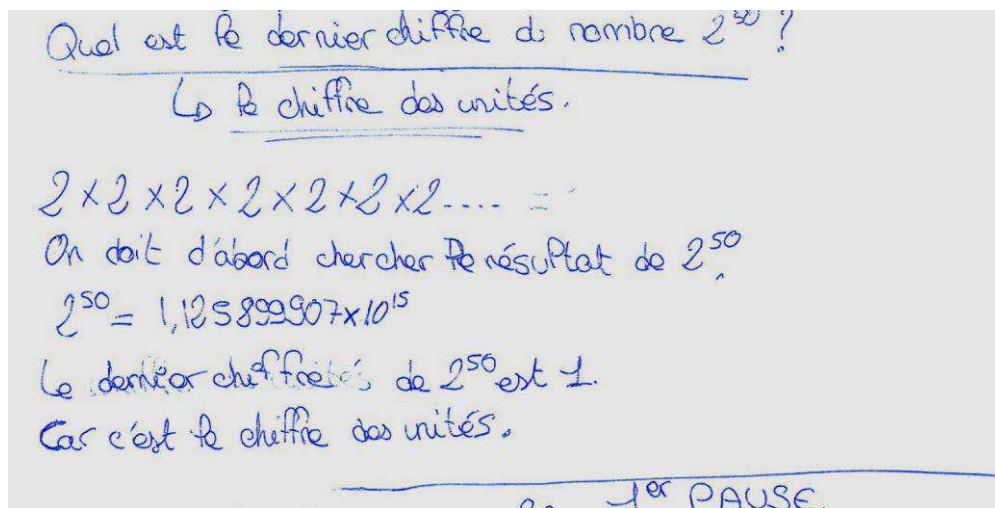 Quel est le dernier chiffre du nombre 2^50 ?
↳ le chiffre des unités.
2 × 2 × 2 × 2 × 2 × 2 × 2 .... =
On doit d'abord chercher le résultat de 2^50.
2^50 = 1,125899907×10^15
Le dernier chiffre de 2^50 est 1.
Car c'est le chiffre des unités.
1er PAUSE